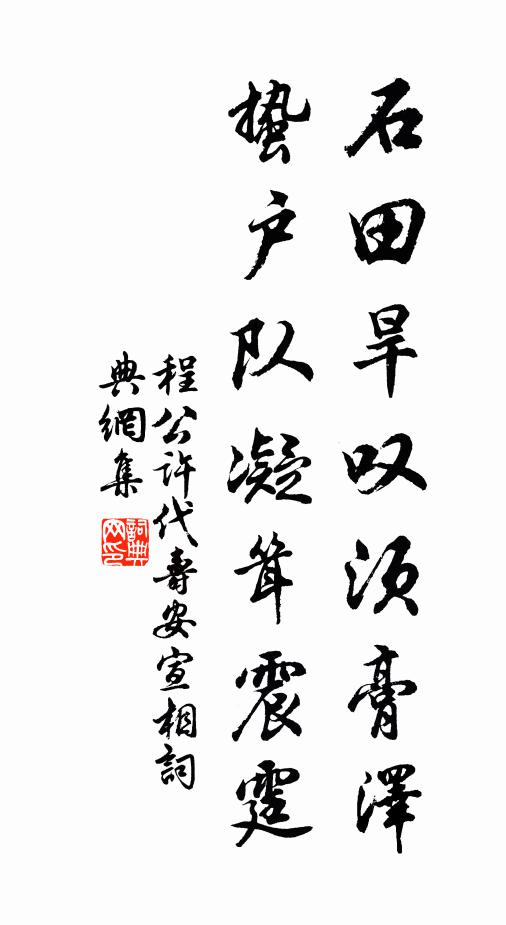 石田旱叹须膏澤
蛰户队凝耸震霆
程公许代壽安宣相詞
典網集
詞典网印